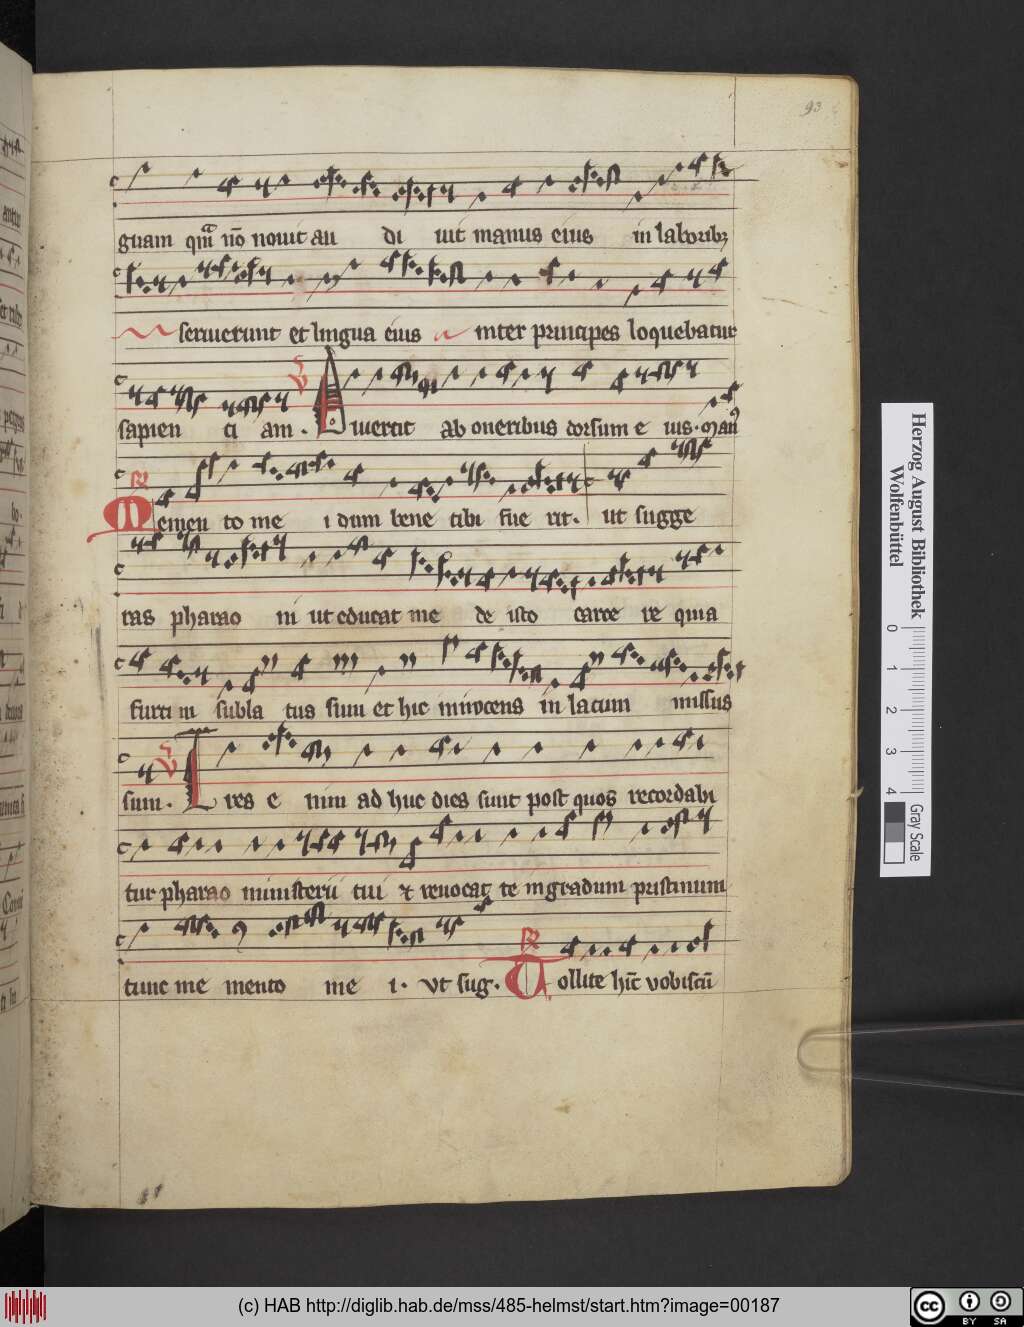 93
guam quā nō nouit au di uit manus eius in laboribꝫ
seruierunt et lingua eius inter principes loquebatur
sapien ti am. V Diuertit ab oneribus dorsum e ius. Man
R
Memen to me i dum bene tibi fue rit. ut sugge
ras pharao ni ut educat me de isto carce re quia
furti ui subla tus sum et hic innocens in lacum missus
sum. V Tres e nim ad huc dies sunt post quos recordabi
tur pharao ministerii tui ⁊ reuocat te in gradum pristinum
R
tunc me mento me i. Vt sug. Tollite hīc vobiscū
Herzog August Bibliothek
Wolfenbüttel
0 1 2 3 4
Gray Scale
(c) HAB http://diglib.hab.de/mss/485-helmst/start.htm?image=00187
cc BY SA